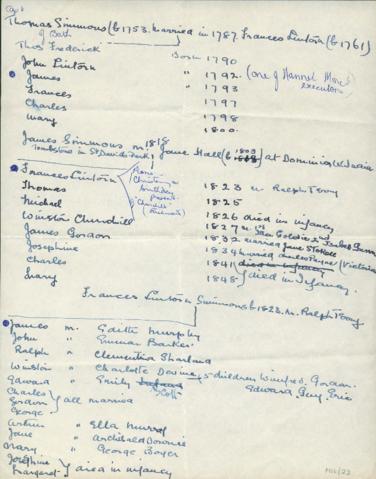 Thomas Simmons (b 1753. Married in 1787. Frances Lintorn (b 1761)
of Bath
Thos Frederick Born 1790
John Lintorn " 1792. (one of Hannah More's executors)
James " 1793
Frances 1797
Charles 1798
Mary 1800.
James Simmons m 1818 Jane Hall (b 1803) at Dominica W. India
Tombstone in St Davids Park
Frances Lintorn 1823 m Ralph Terry
Thomas 1825
Michael 1826 died in infancy
Winston Churchill 1827 m.
James Gordon 1832 married Jane
Josephine 1834 married (Victoria
Charles 1841 died in infancy
Mary 1848 died in Infancy.
Frances Lintorn Simmons b 1823. m. Ralph Terry
James m. Edith Murphy
John " Emma Barker
Ralph " Clementina Sharland
Winston " Charlotte 5 children Winifred, Gordon.
Edward " Emily Edward, Guy, Eric
Charles
Gordon } all married
George
Arthur " Ella Murray
Jane " Archibald Downie
Mary " George Boyer
Josephine
Margaret } died in infancy